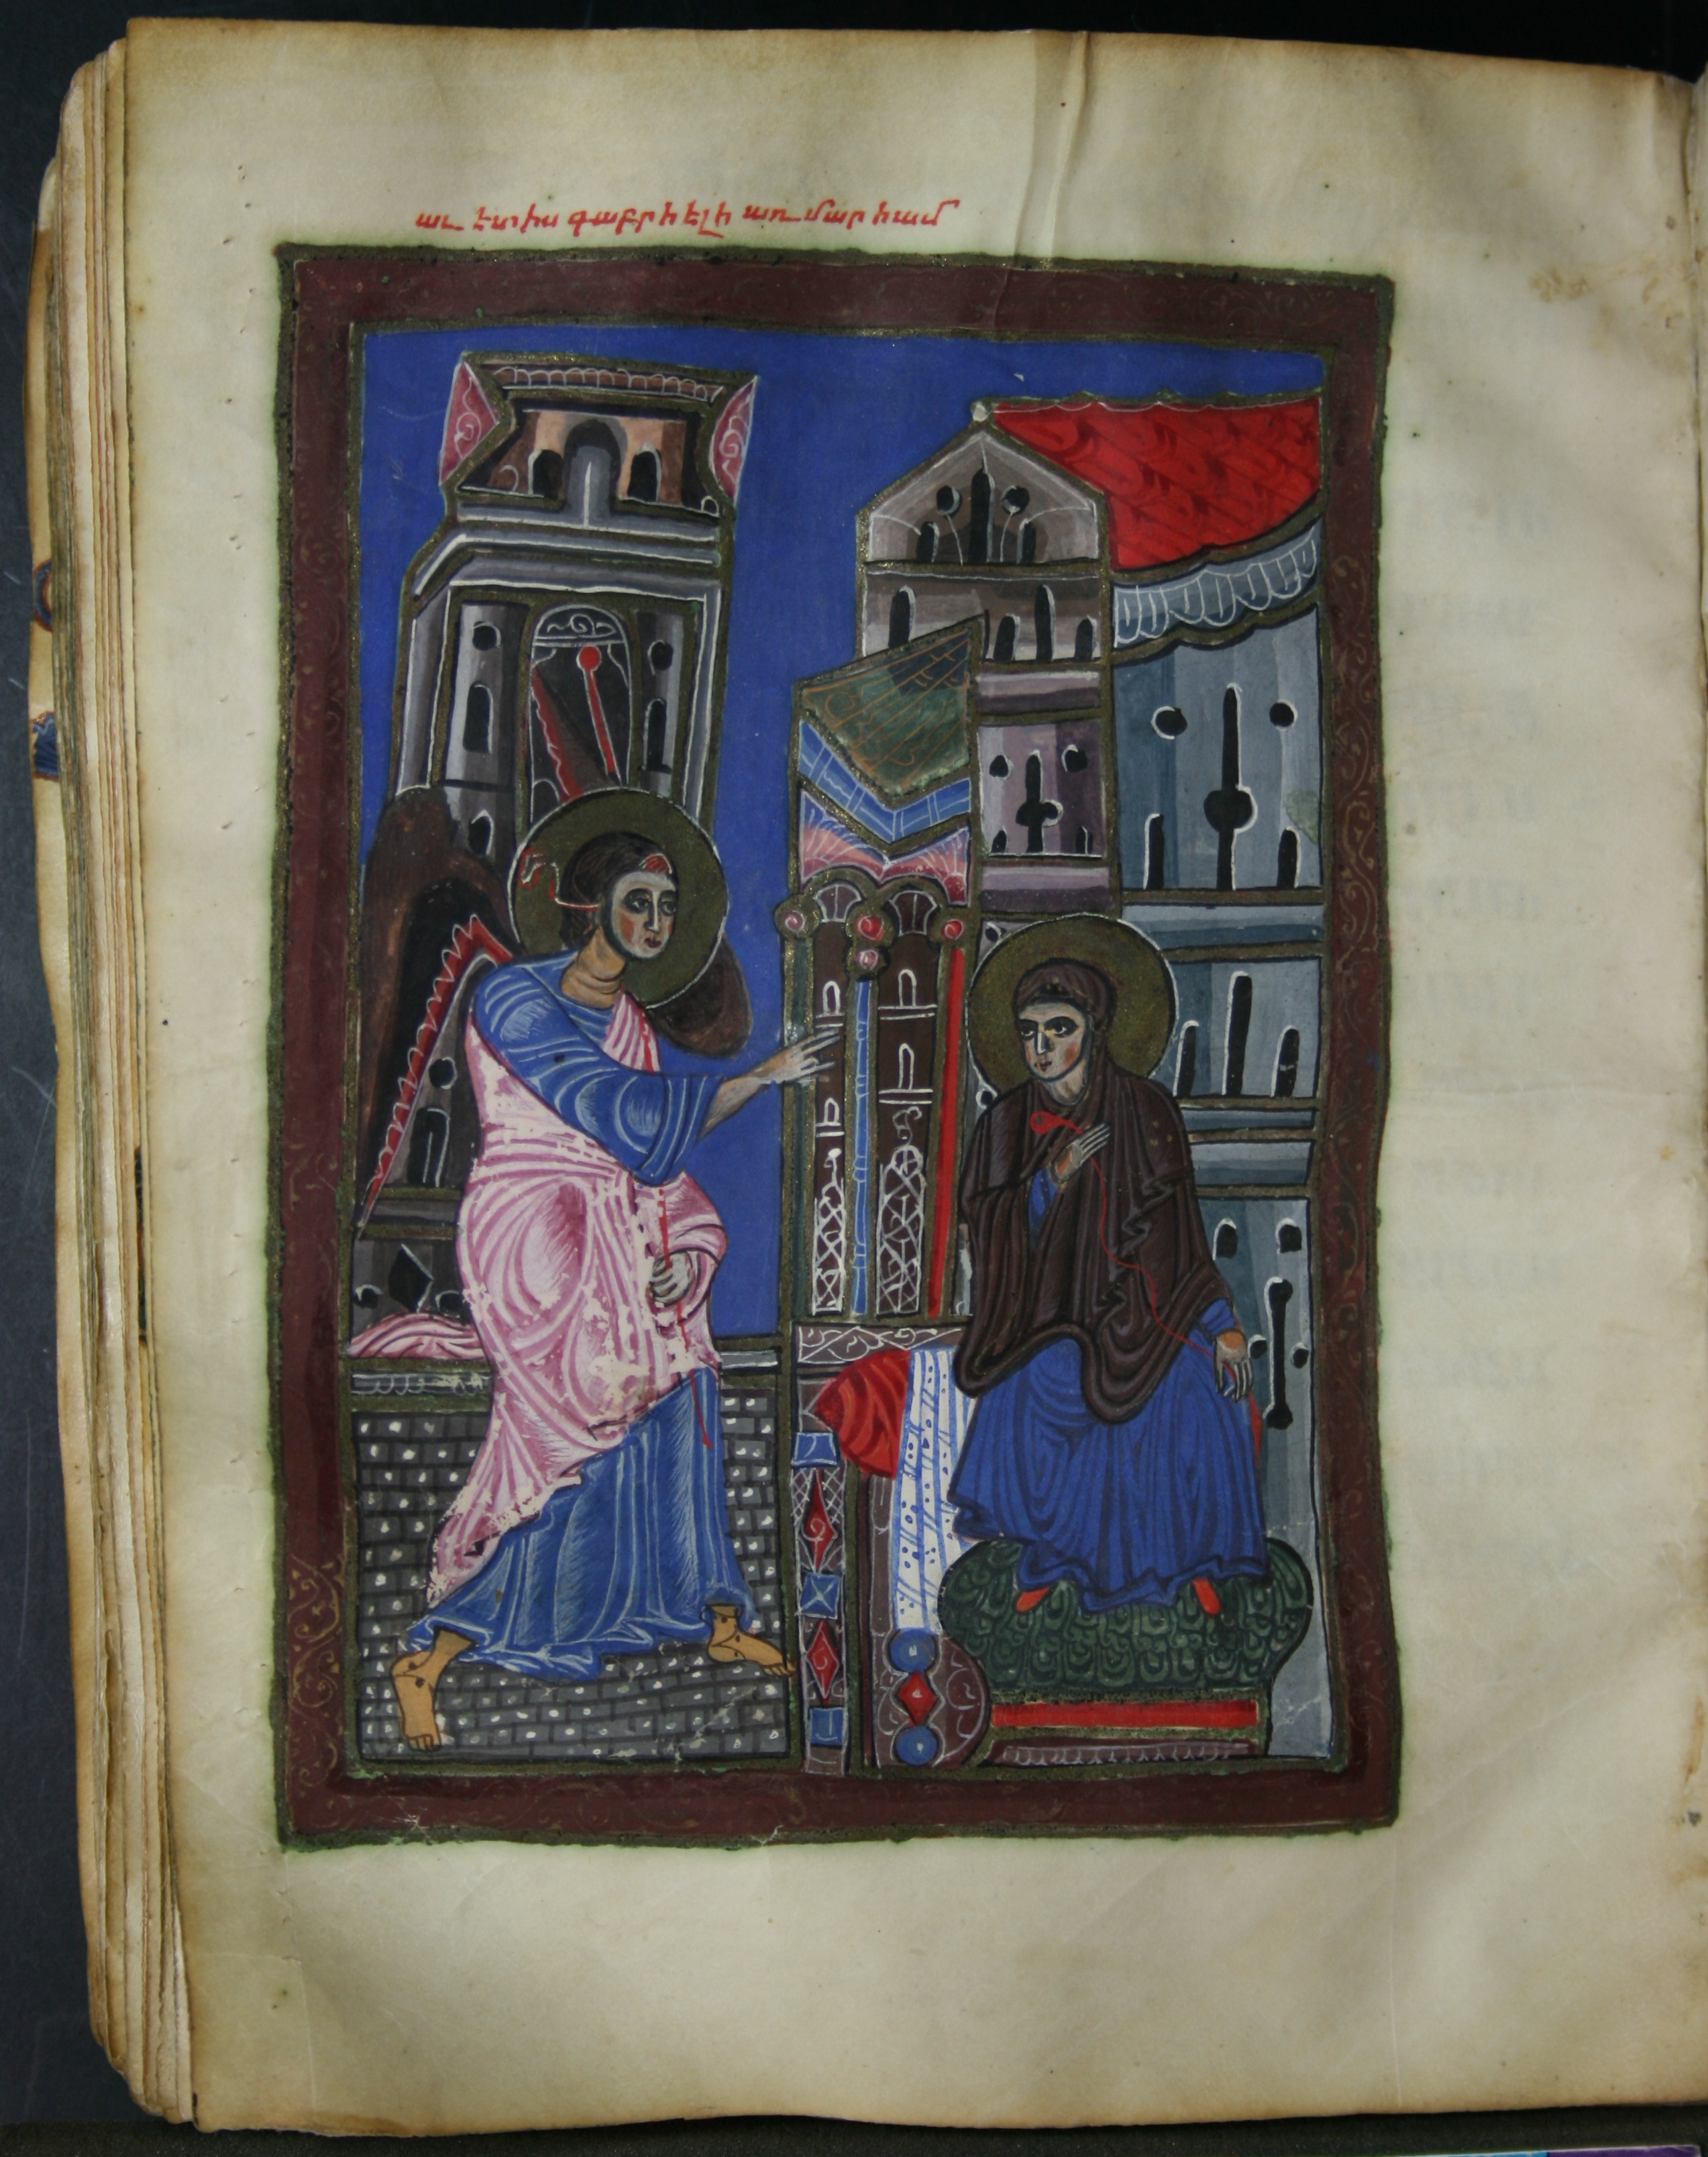 աւետիս գաբրիէլի առ մարիամ